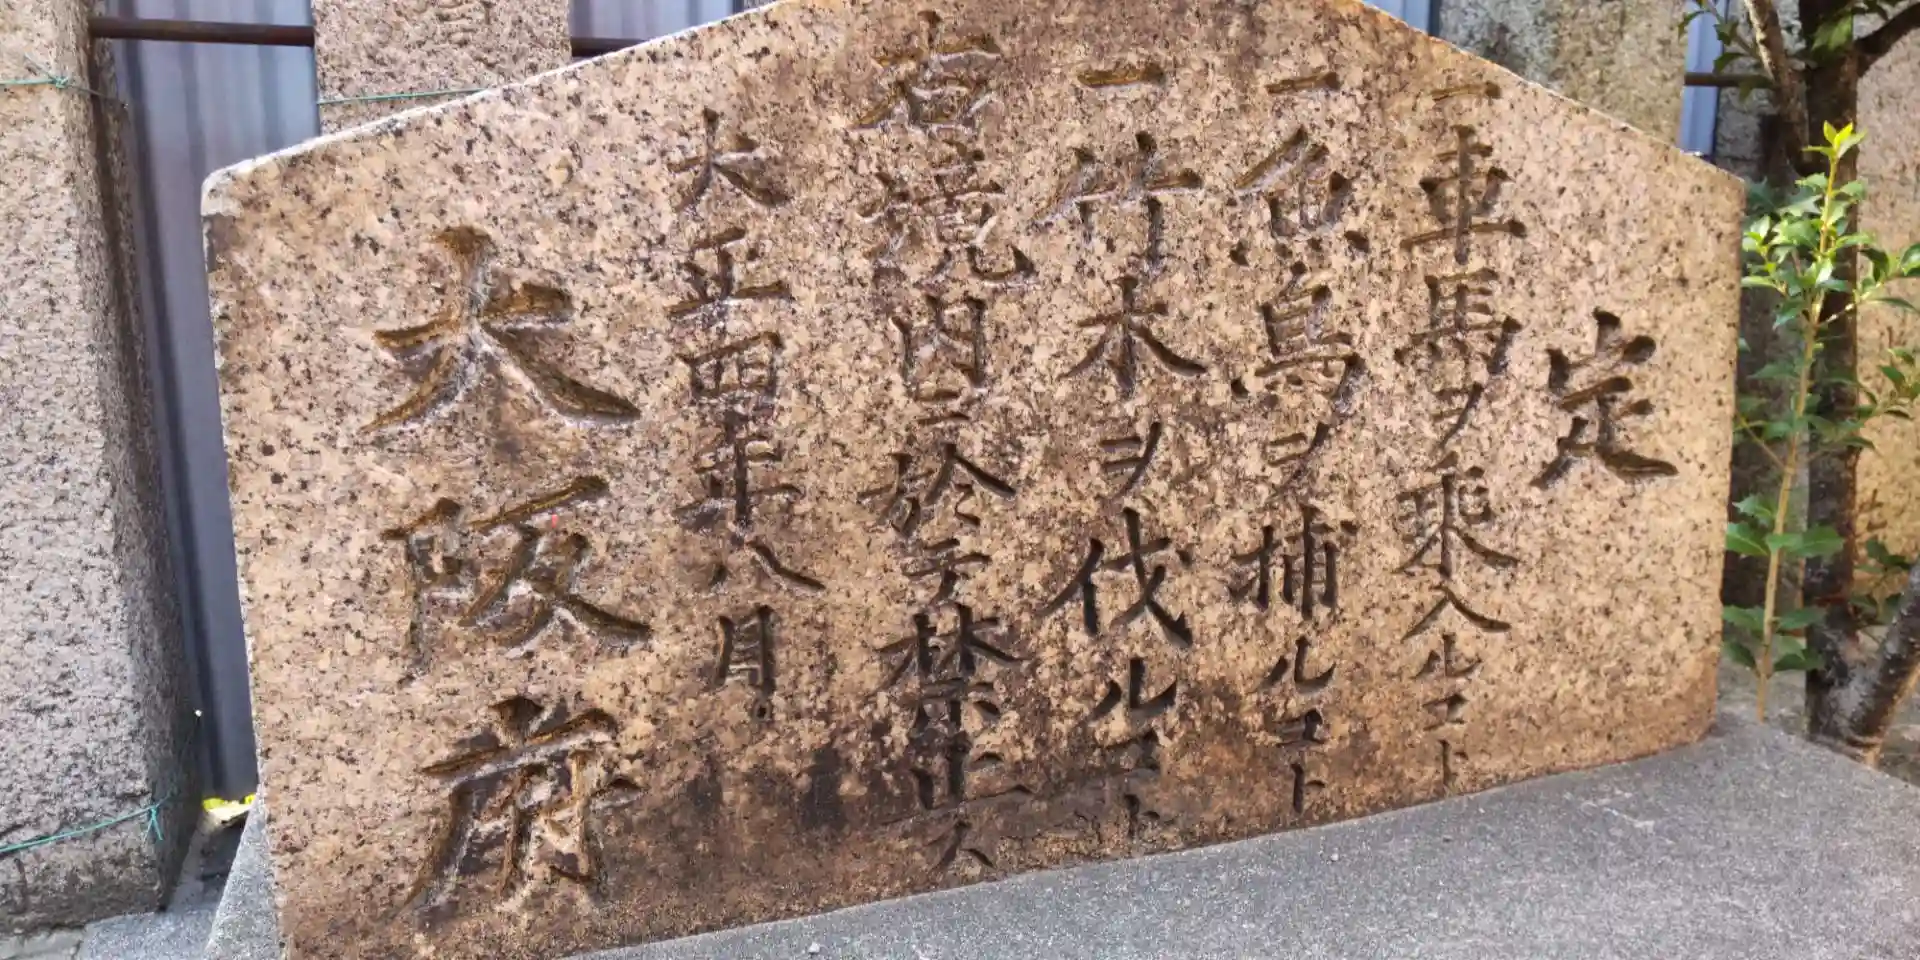 定
一車馬ヲ乗入ルコト
一魚鳥ヲ捕ルコト
一竹木ヲ伐ルコト
右境内ニ於テ禁止ス
大正四年八月
大阪府